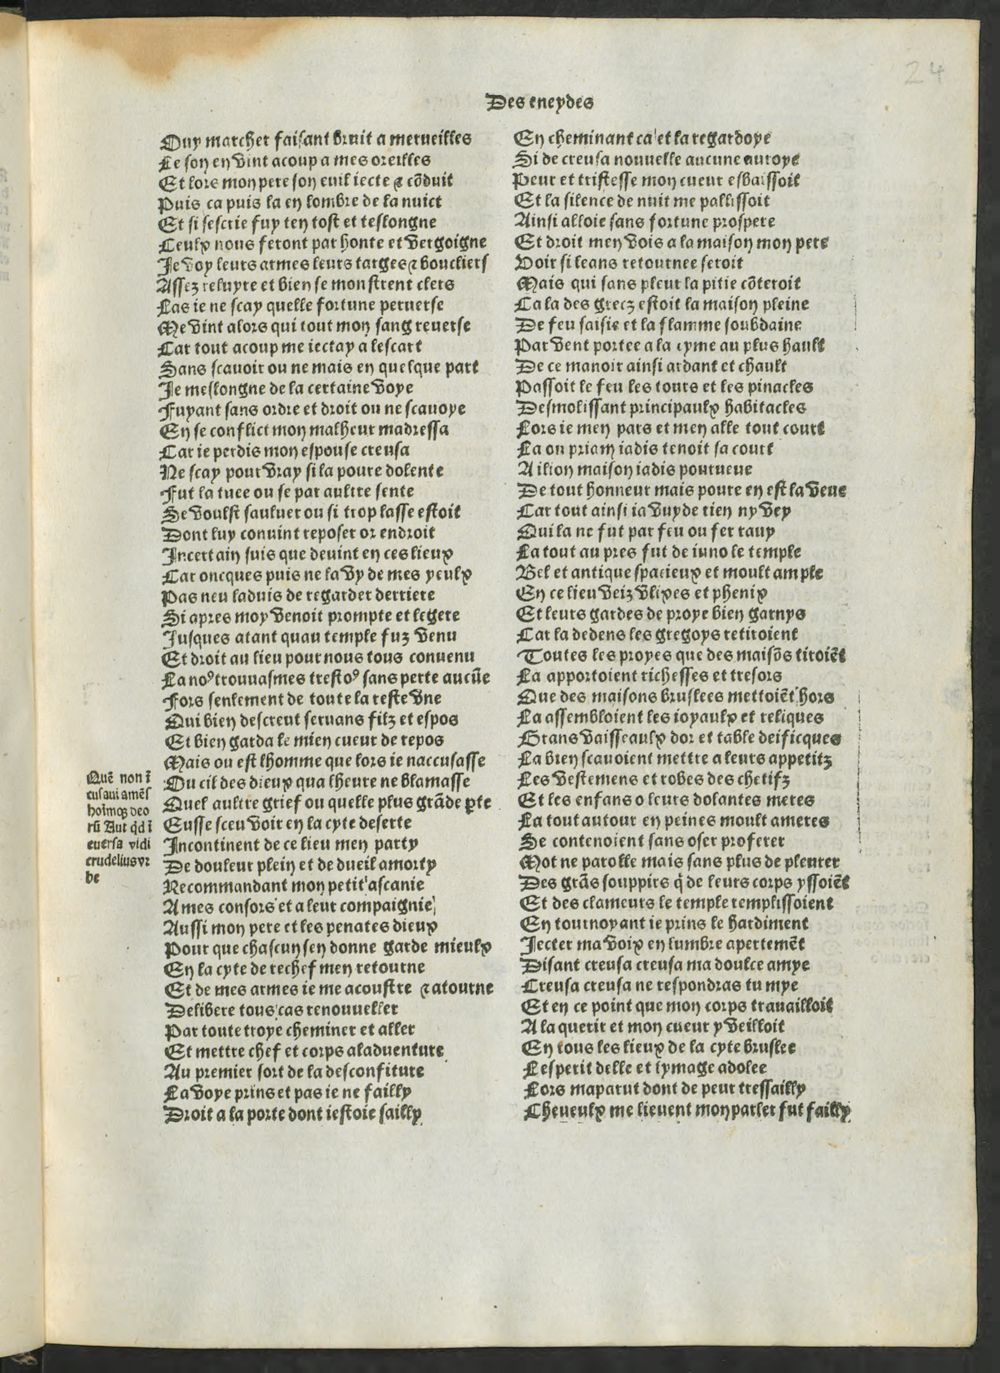 24
Des eneydes
Ouy marcher faisant bruit a merueilles
Le son en vint acoup a mes oreilles
Et lors mon pere son euil iecte ⁊ cõduit
Puis ca puis la en lombre de la nuict
Et si sescrie fuy ten tost et teslongne
Ceulx nous feront par honte et vergoigne
Je voy leurs armes leurs targes ⁊ boucliers
Assez reluyre et bien se monstrent clers
Las ie ne scay quelle fortune peruerse
Me vint alors qui tout mon sang reuerse
Car tout acoup me iectay a lescart
Sans scauoir ou ne mais en quelque part
Je meslongne de la certaine voye
Fuyant sans ordre et droit ou ne scauoye
En se conflict mon malheur madressa
Car ie perdis mon espouse creusa
Ne scay pour vray si la poure dolente
Fut la tuee ou se par aultre sente
Se voulst sauluer ou si trop lasse estoit
Dont luy conuint reposer or endroit
Incertain suis que deuint en ces lieux
Car oncques puis ne la vy de mes yeulx
Pas neu laduis de regarder derriere
Si apres moy venoit prompte et legere
Jusques atant quau temple fuz venu
Et droit au lieu pour nous tous conuenu
La noꝰ trouuasmes trestoꝰ sans perte aucũe
Fors seulement de toute la reste vne
Qui bien descreut seruans filz et espos
Et bien garda le mien cueur de repos
Mais ou est lhomme que lors ie naccusasse
Ou cil des dieux qua lheure ne blamasse
Quel aultre grief ou quelle plus grãde ꝑte
Eusse sceu voir en la cyte deserte
Incontinent de ce lieu men party
De douleur plein et de dueil amorty
Recommandant mon petit ascanie
A mes consors et a leur compaignie
Aussi mon pere et les penates dieux
Pour que chascun sen donne garde mieulx
En la cyte de rechef men retourne
Et de mes armes ie me acoustre ⁊ atourne
Delibere tous cas renouueller
Par toute troye cheminer et aller
Et mettre chef et corps aladuenture
Au premier sort de la desconfiture
La voye prins et pas ie ne failly
Droit a la porte dont iestoie sailly
Quẽ non ĩ
cusaui amẽs
hoĩmqꝫ deo
rũ Aut qͥd ĩ
euersa vidi
crudelius vr
be
En cheminant ca et la regardoye
Si de creusa nouuelle aucune auroye
Peur et tristesse mon cueur esbaissoit
Et la silence de nuit me pallissoit
Ainsi alloie sans fortune prospere
Et droit men vois a la maison mon pere
Voir si leans retournee seroit
Mais qui sans pleur la pitie cõteroit
Ca la des grecz estoit la maison pleine
De feu saisie et la flamme soubdaine
Par vent portee a la cyme au plus hault
De ce manoir ainsi ardant et chault
Passoit le feu les tours et les pinacles
Desmolissant principaulx habitacles
Lors ie men pars et men alle tout court
La ou priam iadis tenoit sa court
A ilion maison iadis pourueue
De tout honneur mais poure en est la veue
Car tout ainsi ia vuyde rien ny vey
Qui la ne fut par feu ou fer rauy
La tout au pres fut de iuno le temple
Bel et antique spacieux et moult ample
En ce lieu veiz vlixes et phenix
Et leurs gardes de proye bien garnys
Car la dedens les gregoys retiroient
Toutes les proyes que des maisõs tiroiẽt
La apportoient richesses et tresors
Que des maisons bruslees mettoiẽt hors
La assembloient les ioyaulx et reliques
Grans vaisseaulx dor et table deificques
La bien scauoient mettre a leurs appetitz
Les vestemens et robes des chetifz
Et les enfans o leurs dolantes meres
La tout autour en peines moult ameres
Se contenoient sans oser proferer
Mot ne parolle mais sans plus de pleurer
Des grãs souppirs q̃ de leurs corps yssoiẽt
Et des clameurs le temple remplissoient
En tournoyant ie prins le hardiment
Jecter ma voix en lumbre apertemẽt
Disant creusa creusa ma doulce amye
Creusa creusa ne respondras tu mye
Et en ce point que mon corps trauailloit
A la querir et mon cueur y veilloit
En tous les lieux de la cyte bruslee
Lesperit delle et lymage adolee
Lors maparut dont de peur tressailly
Cheueulx me lieuent mon parler fut failly